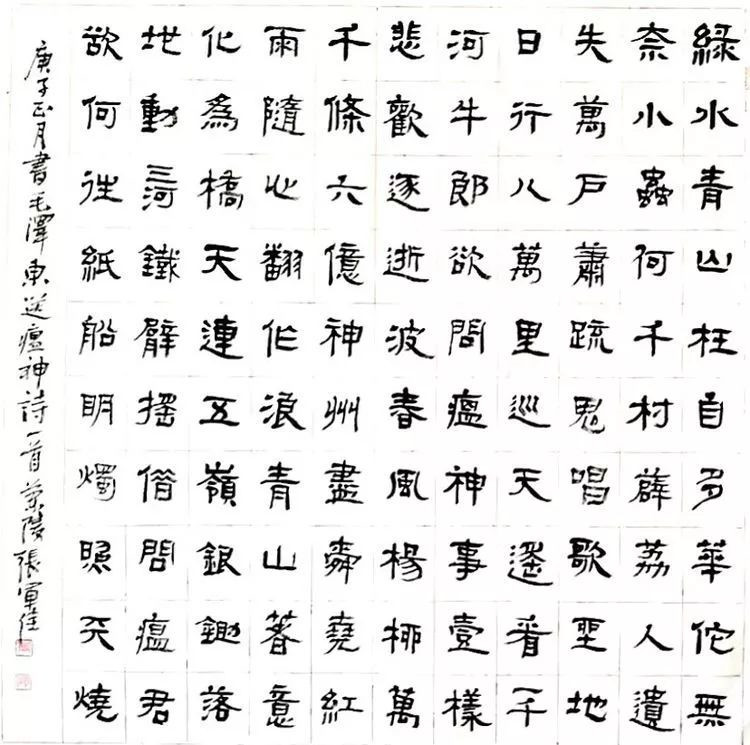 綠水青山枉自多華佗無
奈小蟲何千村薜荔人遺
失萬戶蕭疏鬼唱歌坐地
日行八萬里巡天遙看一千
河牛郎欲問瘟神事壹樣
悲歡逐逝波春風楊柳萬
千條六億神州盡舜堯紅
雨隨心翻作浪青山著意
化為橋天連五嶺銀鋤落
地動三河鐵臂搖借問瘟君
欲何往紙船明燭照天燒
庚子正月書毛澤東送瘟神詩一首蘭陵張軍